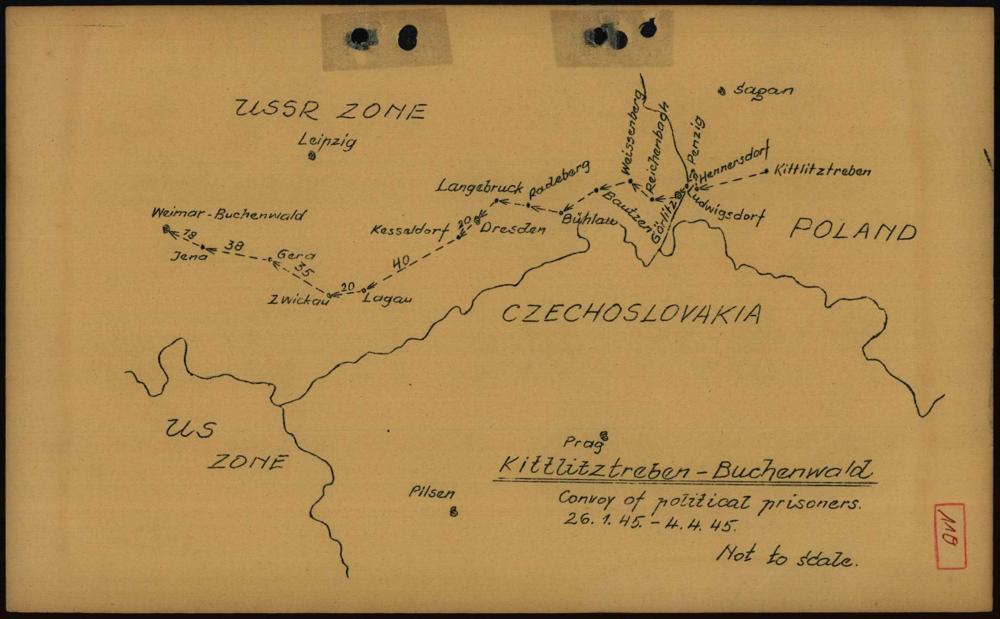 USSR ZONE
Leipzig
Sagan
Weissenberg
Reichenbach
Penzig
Hennersdorf
Kittlitztreben
Ludwigsdorf
Görlitz
Bautzen
Bühlau
Radeberg
Langebruck
Dresden
20
Kesseldorf
40
Lagau
20
Zwickau
35
Gera
38
Jena
18
Weimar-Buchenwald
POLAND
CZECHOSLOVAKIA
US
ZONE
Prag
Pilsen
Kittlitztreben - Buchenwald
Convoy of political prisoners.
26.1.45. - 4.4.45.
Not to scale.